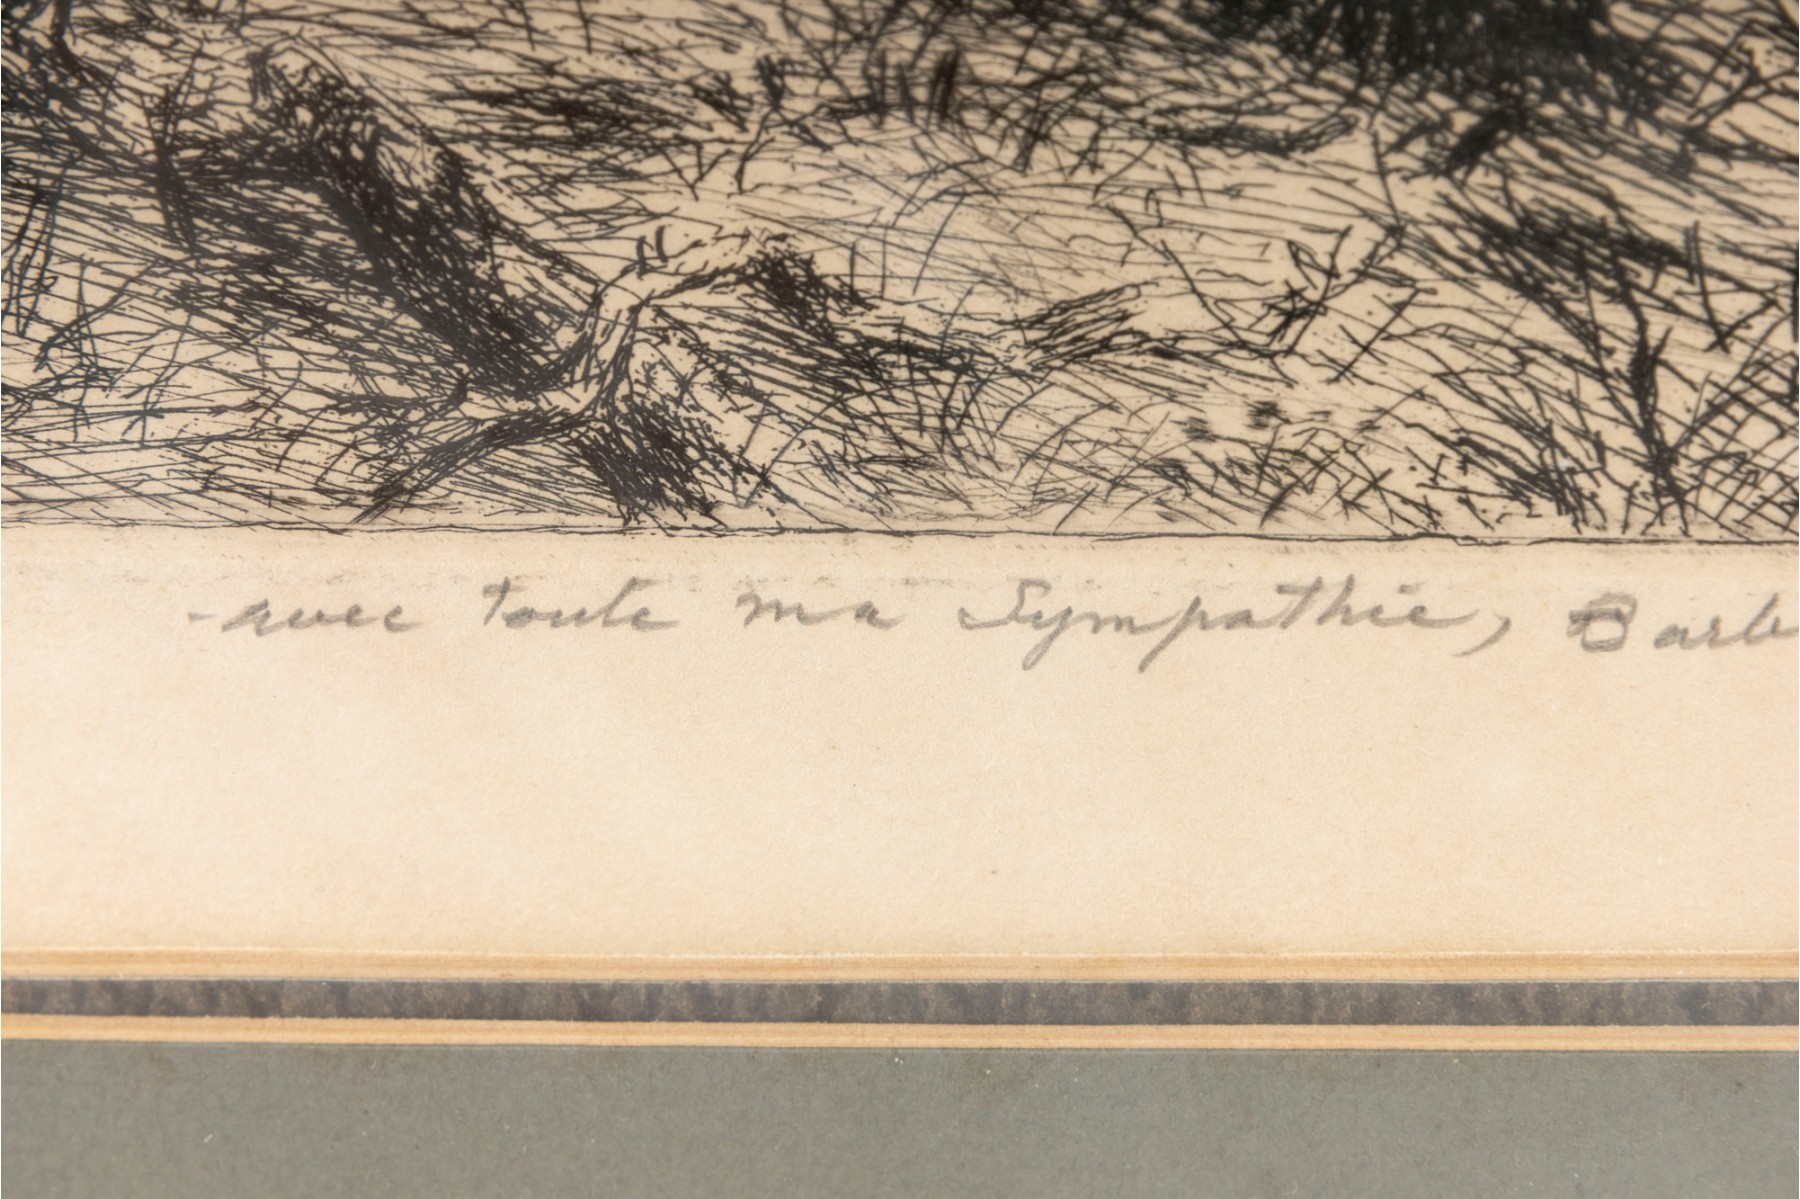 - avec toute ma Sympathie, Barb